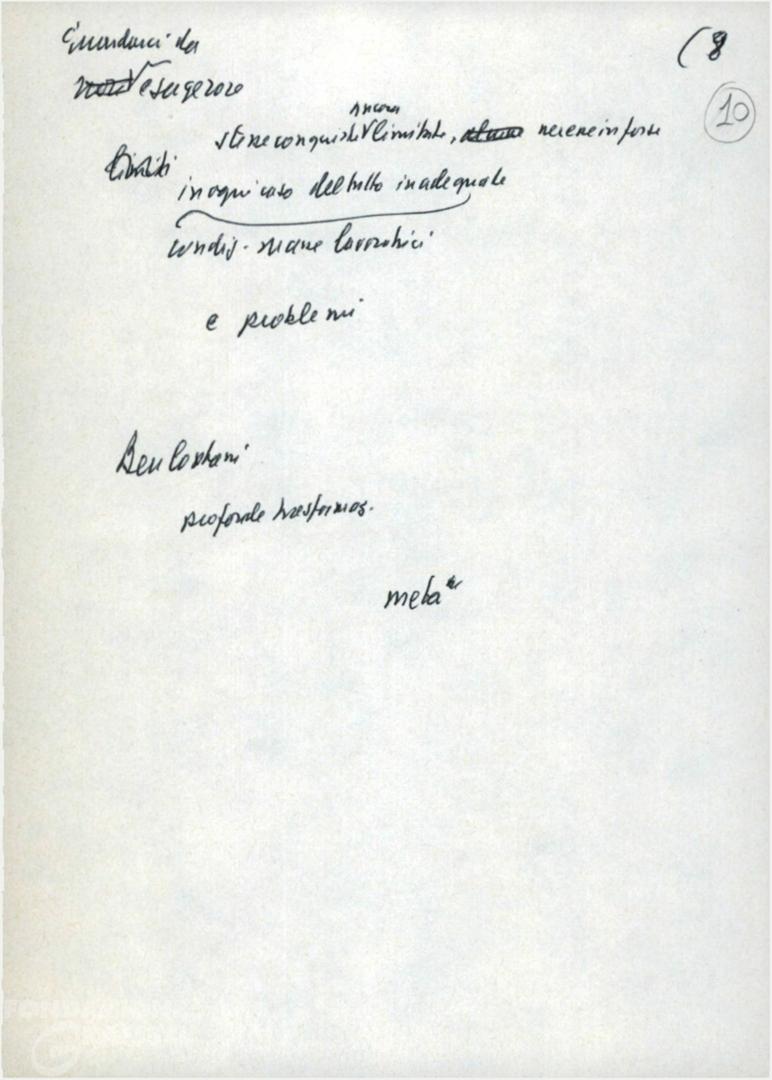 Guardarci da (8
esagerare 10
ancora
stesse conquiste limitate, messe in forse
Limiti
in ogni caso del tutto inadeguate
condiz. mane lavoratrici
e problemi
Ben lontani
profonde trasformaz.
meta
FONDAZIONE